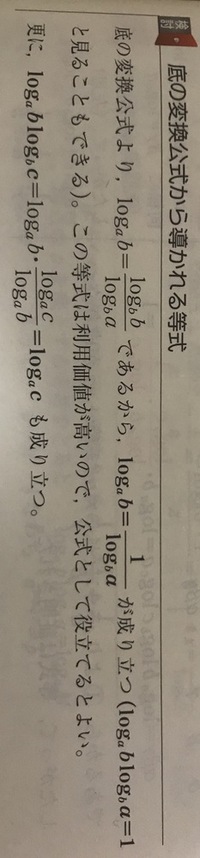 検討
底の変換公式から導かれる等式
底の変換公式より，log_a b = \frac{log_b b}{log_b a} であるから，log_a b = \frac{1}{log_b a} が成り立つ(log_a b log_b a = 1
と見ることもできる)。この等式は利用価値が高いので，公式として役立てるとよい。
更に，log_a b log_b c = log_a b・\frac{log_a c}{log_a b} = log_a c も成り立つ。